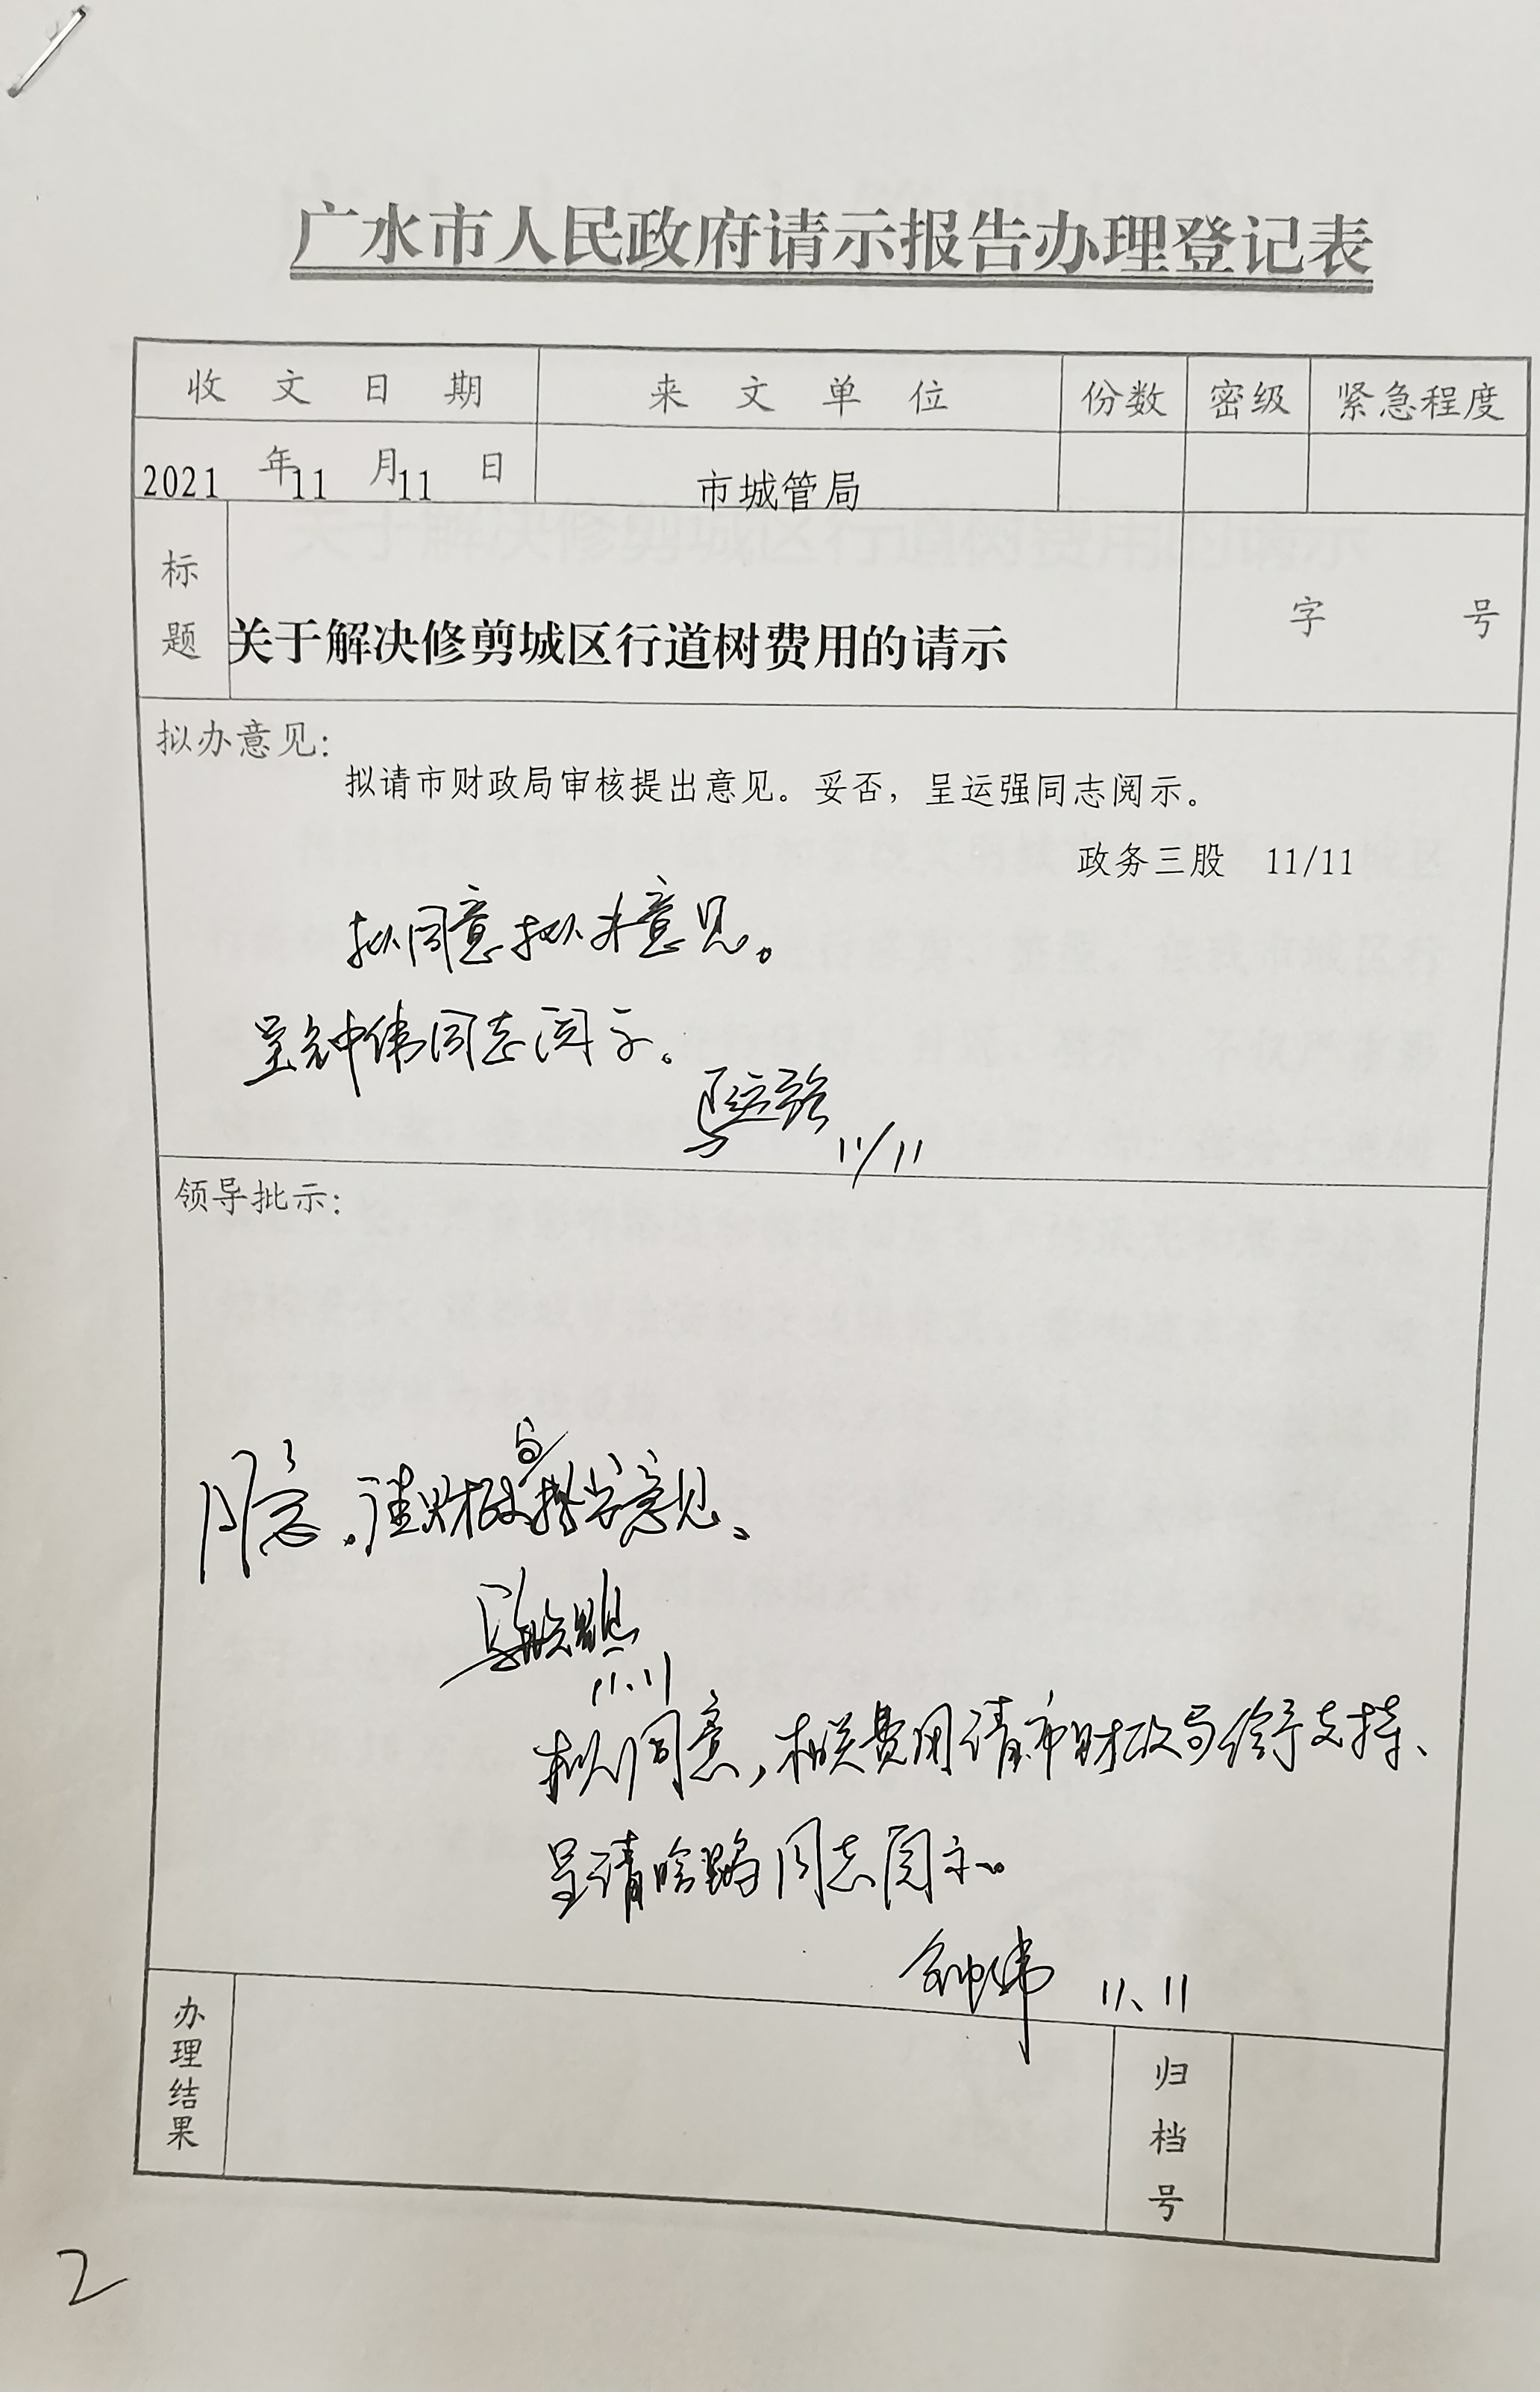 广水市人民政府请示报告办理登记表
收文日期 来文单位 份数 密级 紧急程度
2021年11月11日 市城管局
标题 关于解决修剪城区行道树费用的请示 字 号
拟办意见：
拟请市财政局审核提出意见。妥否，呈运强同志阅示。
政务三股 11/11
拟同意拟办意见。
呈钟伟同志阅示。
11/11
领导批示：
同意。请财政局提出意见。
11.11
拟同意，相关费用请市财政局给予支持、
呈请 同志阅示。
钟伟 11.11
办理结果 归档号
2